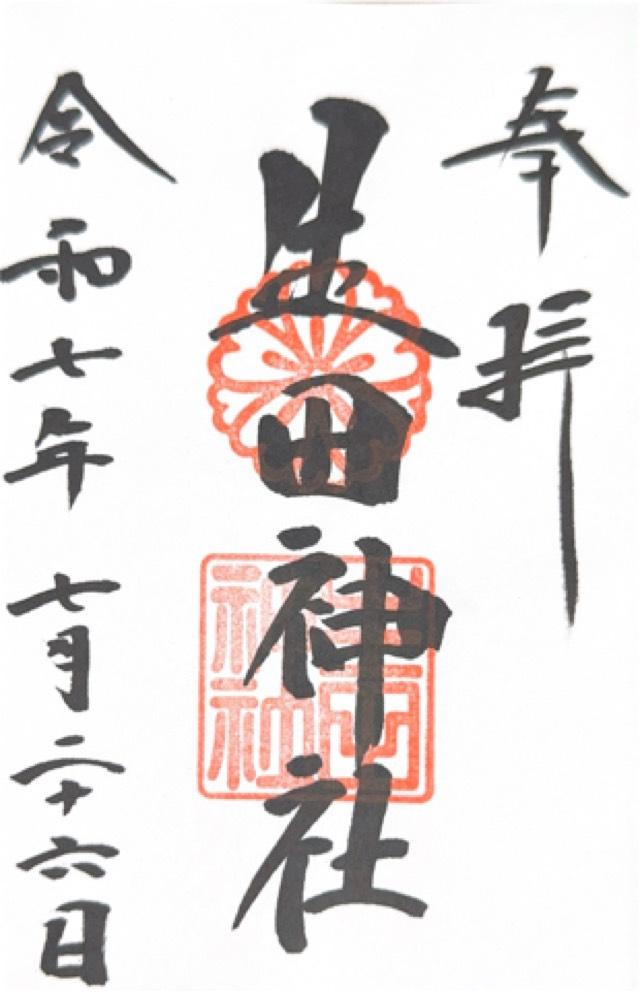 奉拝
生田神社
生田神社
令和七年七月二十六日